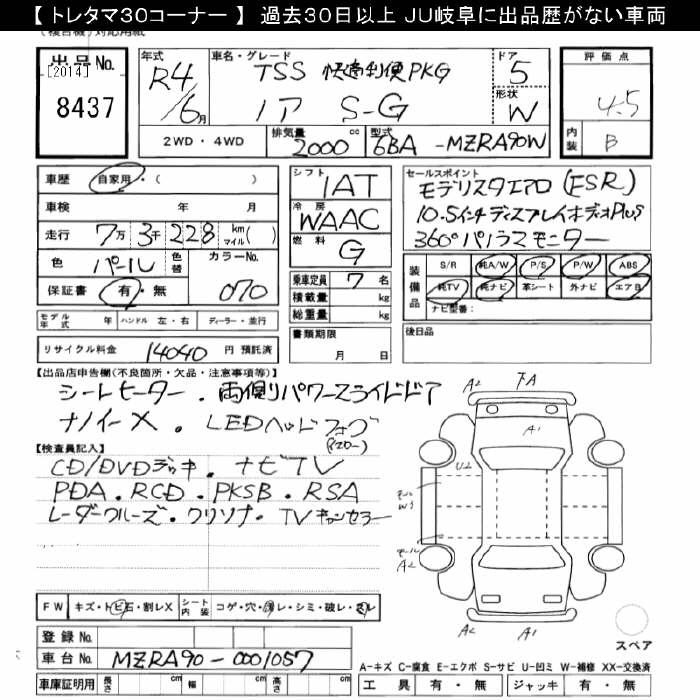 【 トレタマ30コーナー 】 過去30日以上 JU岐阜に出品歴がない車両
出品No. [2014] 8437
年式 R4/6月
車名・グレード TSS 快適利便PKG
ノア S-G
ドア 5
形状 W
評価点 4.5
内装 B
2WD ・ 4WD
排気量 2000 cc
型式 6BA -MZRA90W
車歴 自家用・( )
車検 年 月
走行 7万 3千 228 km マイル( )
色 パール 色替 カラーNo. 070
保証書 有・無
シフト IAT
冷房 WAAC
燃料 G
乗車定員 7 名
積載量 kg
総重量 kg
書類期限 月 日
セールスポイント
モデリスタエアロ (FSR)
10.5インチディスプレイオーディオPlus
360°パノラマモニター
装備品 S/R 純A/W P/S P/W ABS
純TV 純ナビ 革シート 外ナビ エアB
ナビ型番:
後日品
モデル年式 年 ハンドル 左・右 ディーラー・並行
リサイクル料金 14040 円 預託済
【出品店申告欄(不良箇所・欠品・注意事項等)】
シートヒーター . 両側パワースライドドア
ナノイーX . LEDヘッドフォグ
【検査員記入】
CD/DVDデッキ . ナビTV
PDA . RCD . PKSB . RSA
レーダークルーズ・クリソナ・TVキャンセラー
A2 FA
A1
U2
W3
A2
A2 A1
スペア
FW キズ・トビ石・割レX シート内装 コゲ・穴・スレ・シミ・破レ・ヨレ
登録No.
車台No. MZRA90-0001057
車庫証明用 長さ cm 幅 cm 高さ cm
A-キズ C-腐食 E-エクボ S-サビ U-凹ミ W-補修 XX-交換済
工具 有・無 ジャッキ 有・無